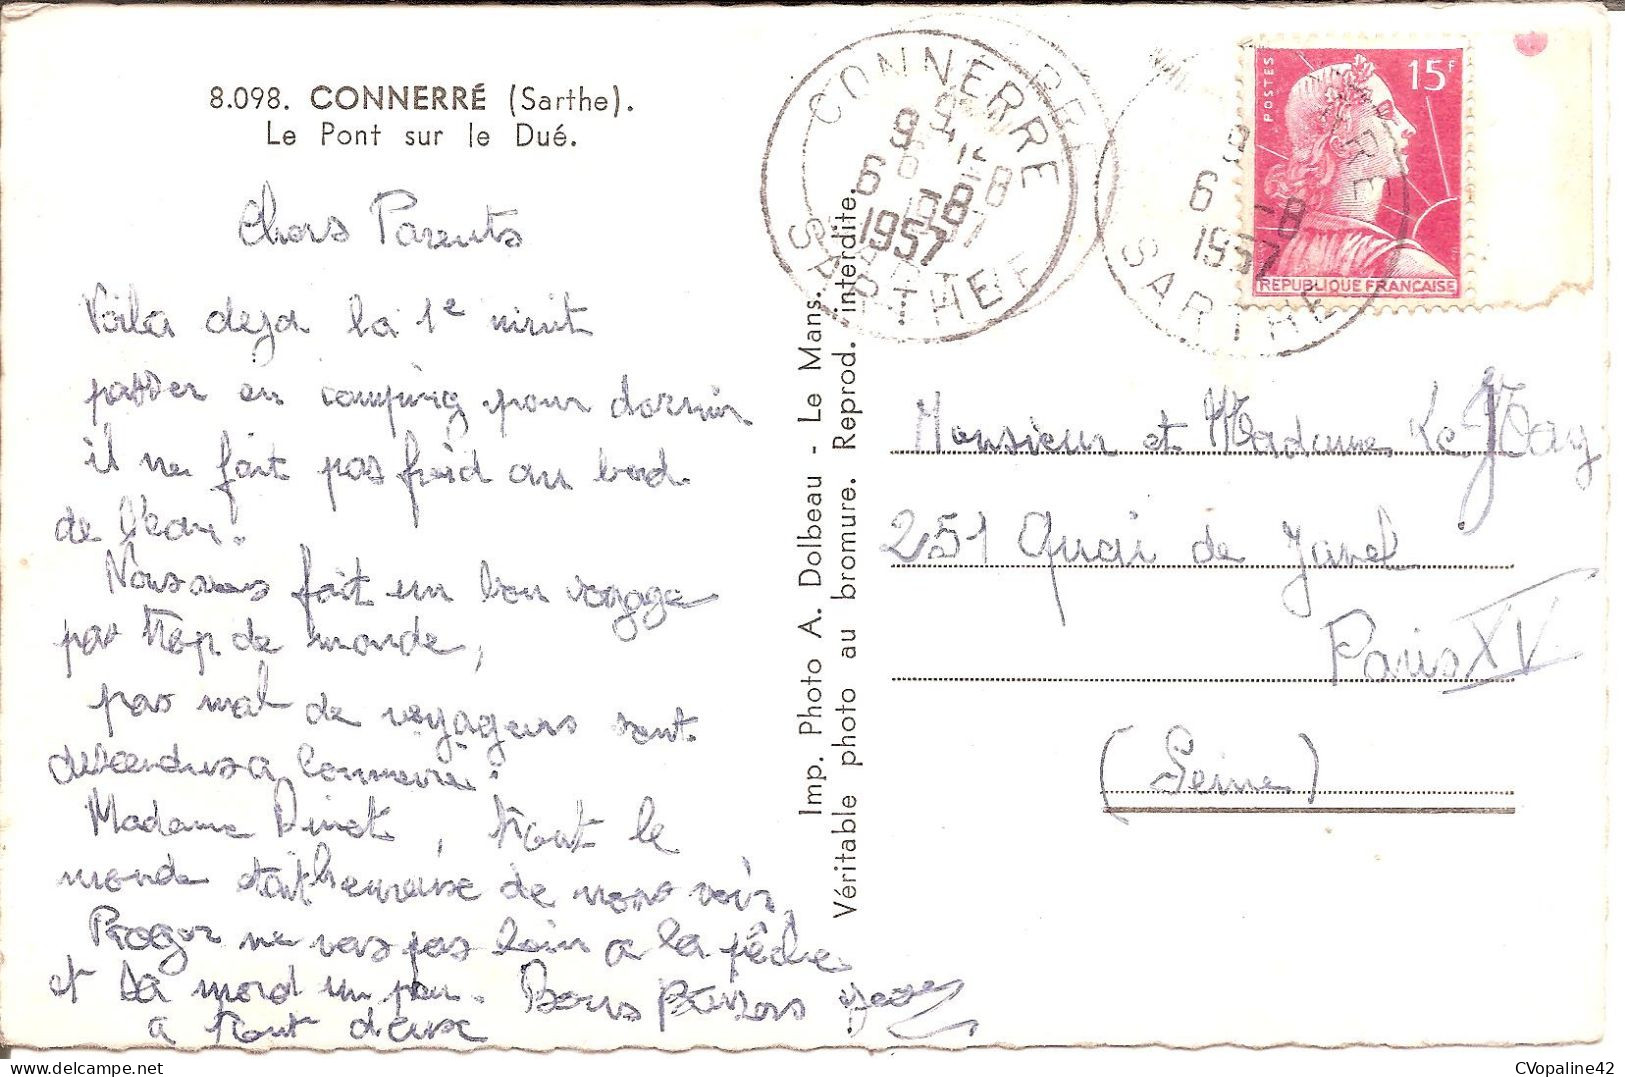 8.098. CONNERRÉ (Sarthe).
Le Pont sur le Dué.
Chers Parents
Voila deja la 1e nuit
passer en camping pour dormir
il ne fait pas froid au bord
de l'eau.
Nous avons fait un bon voyage
pas trop de monde,
pas mal de voyageurs sont
descendus a Connerré.
Madame Pinet, tout le
monde était heureuse de nous voir,
Roger ne vas pas loin a la pêche
et sa mord un peu. Bons Baisers
a tout deux
Imp. Photo A. Dolbeau - Le Mans.
Véritable photo au bromure. Reprod. interdite.
CONNERRE
9 H
6 -8
1957
SARTHE
RE
9
6 -8
1957
SARTHE
POSTES
15F
REPUBLIQUE FRANCAISE
Monsieur et Madame Le
251 Quai de Javel
Paris XV
(Seine)
CVopaline42